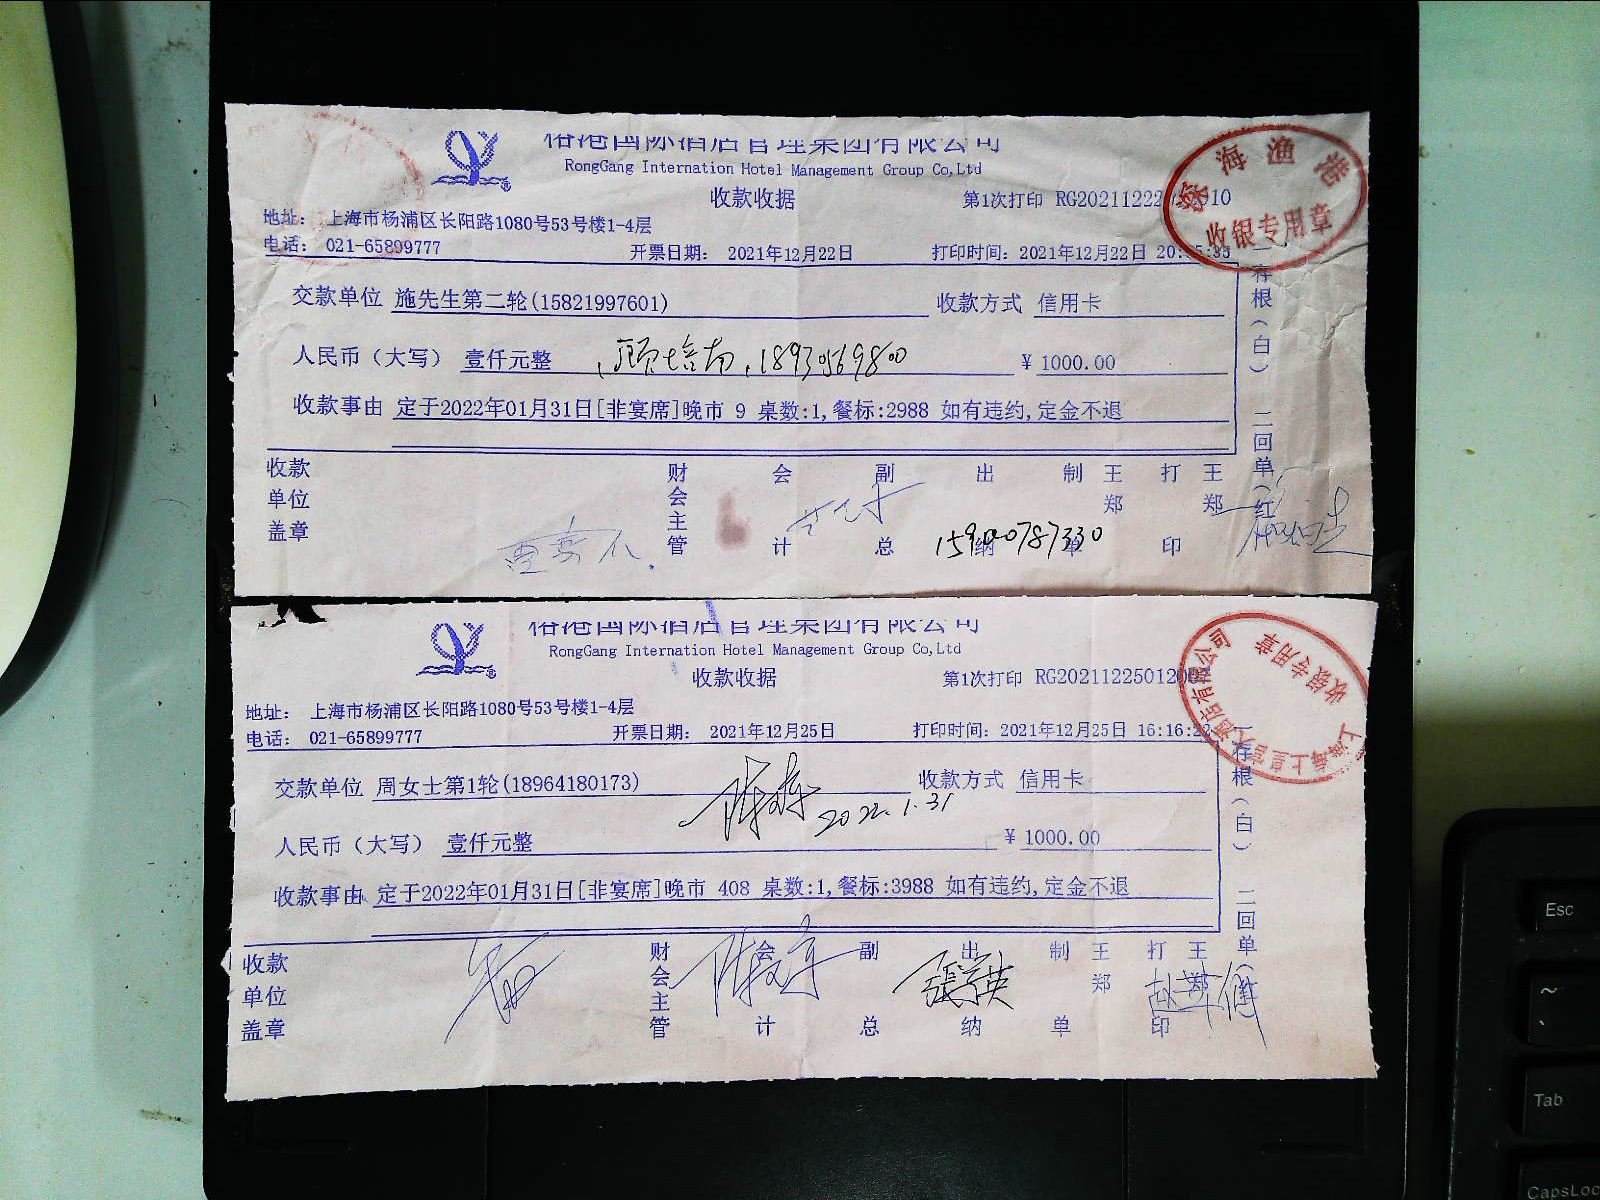 国际酒店管理集团有限公司
RongGang Internation Hotel Management Group Co,Ltd
收款收据
第1次打印
地址: 上海市杨浦区长阳路1080号53号楼1-4层
电话: 021-65899777 开票日期: 2021年12月22日 打印时间: 2021年12月22日
海渔港
收银专用章
交款单位 施先生第二轮(15821997601) 收款方式 信用卡
人民币（大写） 壹仟元整 ¥ 1000.00
收款事由 定于2022年01月31日[非宴席]晚市 9 桌数:1,餐标:2988 如有违约,定金不退
存根(白) 二回单(红)
收款单位盖章 财会主管 会计 副总 出纳 制单 王郑 打印 王郑
国际酒店管理集团有限公司
RongGang Internation Hotel Management Group Co,Ltd
收款收据
第1次打印
地址: 上海市杨浦区长阳路1080号53号楼1-4层
电话: 021-65899777 开票日期: 2021年12月25日 打印时间: 2021年12月25日 16:16:22
上海海上皇宫大酒店有限公司
收银专用章
交款单位 周女士第1轮(18964180173) 收款方式 信用卡
2022.1.31
人民币（大写） 壹仟元整 ¥ 1000.00
收款事由 定于2022年01月31日[非宴席]晚市 408 桌数:1,餐标:3988 如有违约,定金不退
存根(白) 二回单(红)
收款单位盖章 财会主管 会计 副总 出纳 制单 王郑 打印 王郑
Esc
~
Tab
CapsLoc